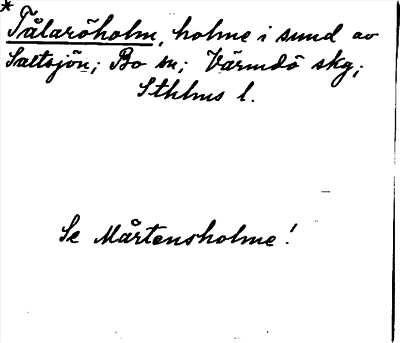 * Tålaröholm, holme i sund av
Saltsjön; Bo sn; Värmdö skg;
Sthlms l.
Se Mårtensholme!